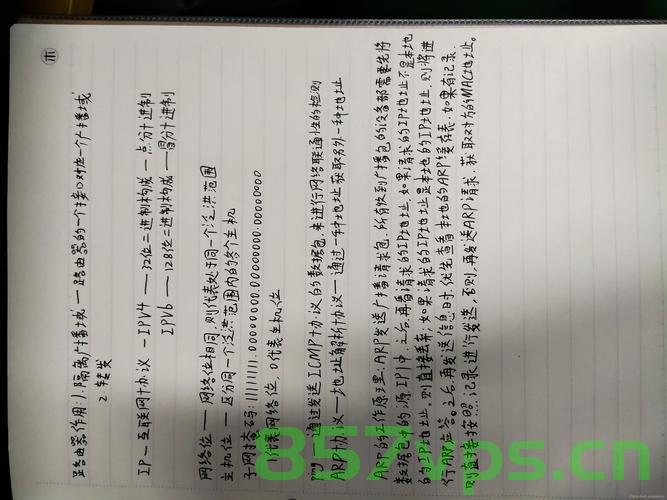 ㊍
路由器作用:1.隔离广播域 — 路由器的一个接口对应一个广播域
2.转发
IP — 互联网协议 — IPV4 —— 32位二进制构成 — 点分十进制
IPV6 —— 128位二进制构成 — 冒分十进制
网络位 —— 网络位相同,则代表处于同一个泛洪范围
主机位 — 区分同一个泛洪范围内的各个主机
子网掩码:11111111.00000000.00000000.00000000
1代表网络位,0代表主机位
ping — 通过发送ICMP协议的数据包,来进行网络联通性的检测
ARP协议 — 地址解析协议 — 通过一种地址获取另外一种地址
ARP的工作原理:ARP发送广播请求包,所有收到广播包的设备都需要先将
数据包中的源IP 之后,再看请求的IP地址,如果请求的IP地址不是本地
的IP地址,则直接丢弃;如果请求的IP地址是本地的IP地址,则将进
行ARP应答。之后再发送信息时,优先查看本地的ARP缓存表,如果有记录,
则直接按照 记录进行发送,否则,再发送ARP请求,获取对方的MAC地址。
857ps.cn